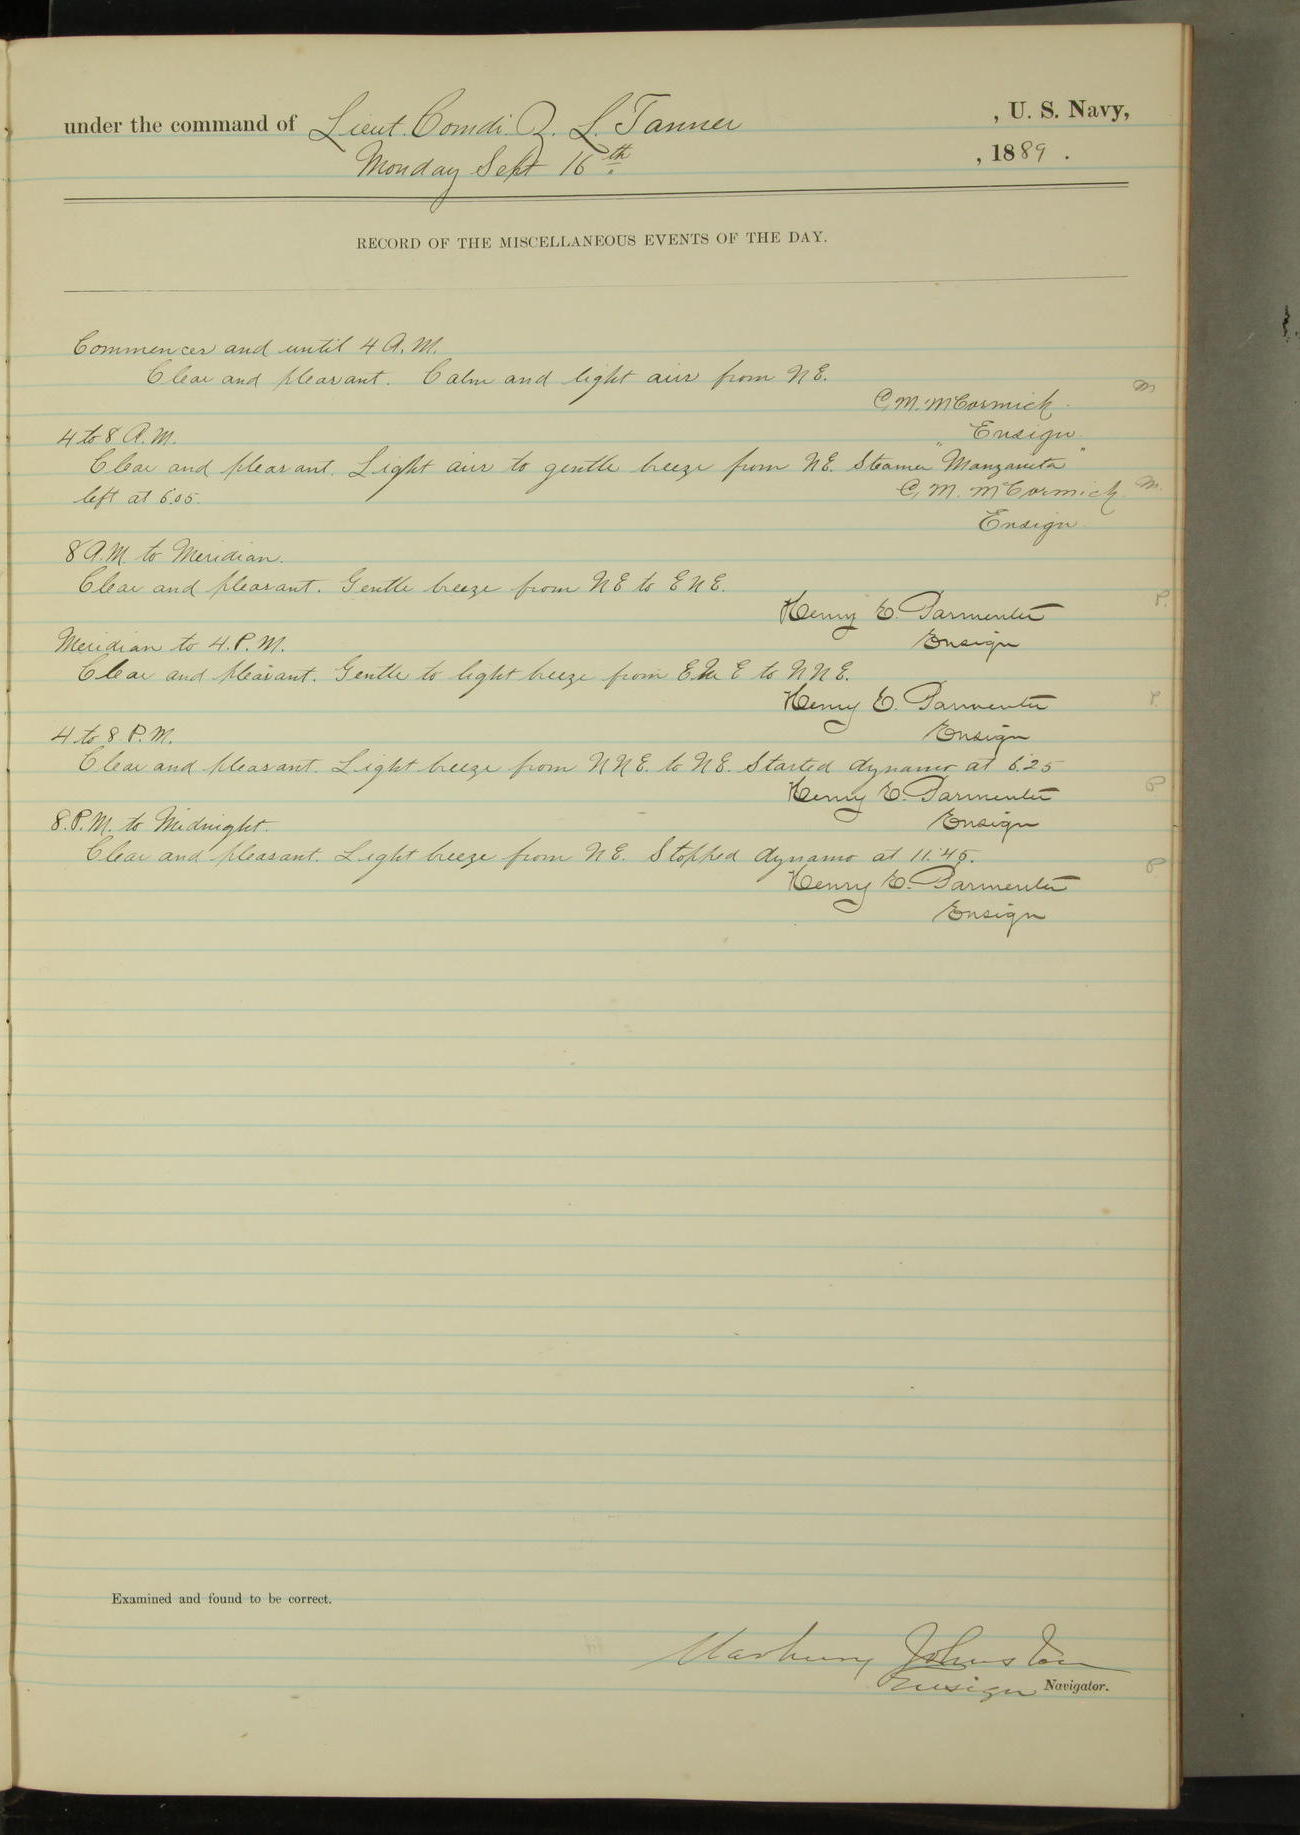 under the command of Lieut. Comdr. Z. L. Tanner , U. S. Navy,
Monday Sept 16th. , 1889 .
RECORD OF THE MISCELLANEOUS EVENTS OF THE DAY.
Commences and until 4 A.M.
Clear and pleasant. Calm and light airs from NE.
C. M. McCormick M
Ensign.
4 to 8 A.M.
Clear and pleasant. Light airs to gentle breeze from NE. Steamer "Manzaneta"
left at 6.05. C. M. McCormick M.
Ensign
8 A.M. to Meridian.
Clear and pleasant. Gentle breeze from NE to ENE.
Henry E. Parmenter P.
Ensign
Meridian to 4. P. M.
Clear and pleasant. Gentle to light breeze from ENE to NNE.
Henry E. Parmenter P.
Ensign
4 to 8 P. M.
Clear and pleasant. Light breeze from NNE. to NE. Started dynamo at 6.25
Henry E. Parmenter P
Ensign
8. P. M. to Midnight.
Clear and pleasant. Light breeze from NE. Stopped dynamo at 11.45.
Henry E. Parmenter P
Ensign
Examined and found to be correct.
Marbury Johnston
Ensign Navigator.